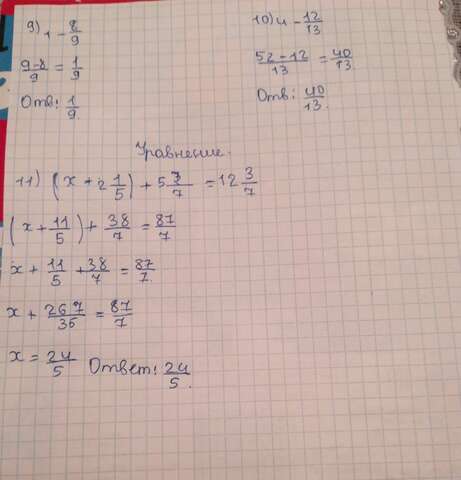 9) 1 - 8/9
(9-8)/9 = 1/9
Отв: 1/9.
10) 4 - 12/13
(52-12)/13 = 40/13.
Отв: 40/13.
Уравнение.
11) (x + 2 1/5) + 5 3/7 = 12 3/7
(x + 11/5) + 38/7 = 87/7
x + 11/5 + 38/7 = 87/7.
x + 267/35 = 87/7
x = 24/5 Ответ: 24/5.